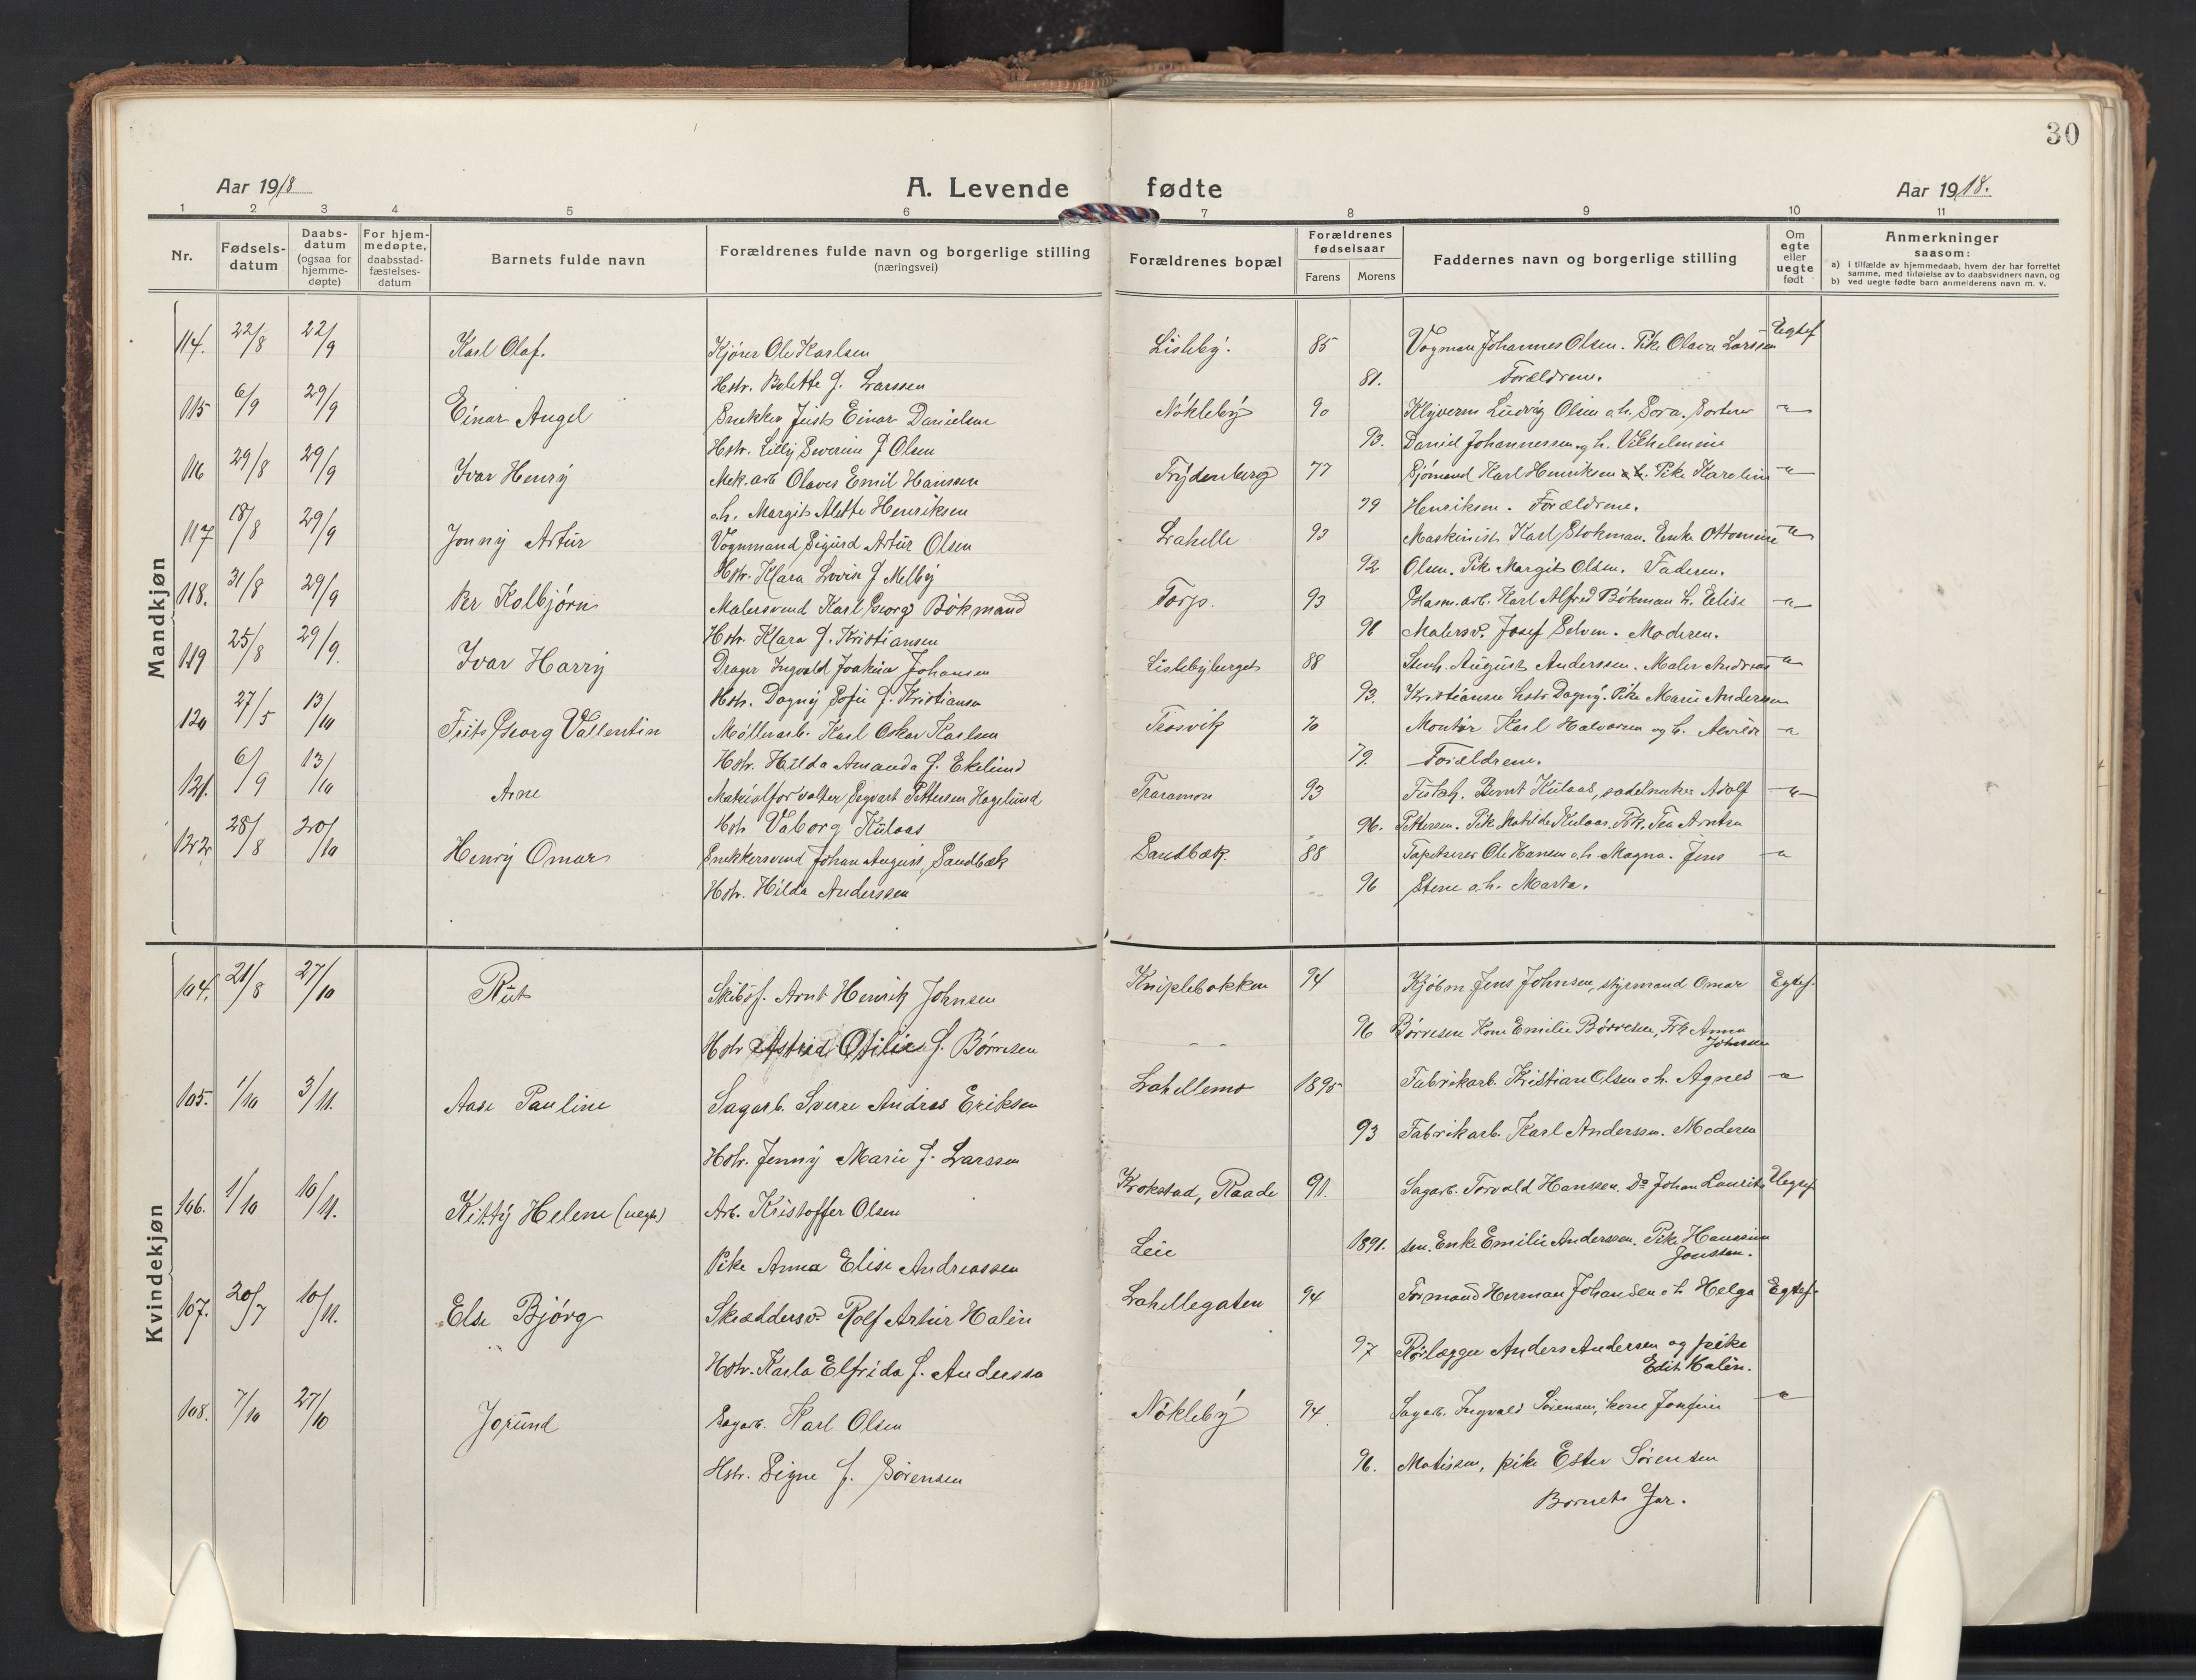 30
Aar 1918
A. Levende fødte
Aar 1918.
1 2 3 4 5 6 7 8 9 10 11
Nr.
Fødsels-datum
Daabs-datum (ogsaa for hjemme-døpte)
For hjem-medøpte, daabsstad-fæstelses-datum
Barnets fulde navn
Forældrenes fulde navn og borgerlige stilling (næringsvei)
Forældrenes bopæl
Forældrenes fødselsaar
Farens Morens
Faddernes navn og borgerlige stilling
Om egte eller uegte født
Anmerkninger saasom:
a) i tilfælde av hjemmedaab, hvem der har forrettet samme, med tilføielse av to daabsvidners navn, og
b) ved uegte fødte barn anmelderens navn m. v.
Mandkjøn
114. 22/8 22/9 Karl Olaf. Kjører Ole Karlsen Lisleby. 85 Vogman Johannes Olsen. Pike Olava Larssen Egtef
Hstr. Bolette f. Larssen 81. Forældrene.
115 6/9 29/9 Einar Angel Snekker Einar Danielsen Nökleby 90 Ludvig Olsen o.h. Sorterer "
Hstr. Lilly Severine f Olsen 93. Daniel Johannessen og h. Vilhelmine
116 29/8 29/9 Ivar Henry Mek. arb Olaves Emil Hanssen Frydenberg 77 Sjömand Karl Henriksen o.h. Pike Karoline "
o.h. Margit Alette Henriksen 79 Henriksen. Forældrene.
117 18/8 29/9 Jonny Artur Vognmand Sigurd Artur Olsen Lahelle 93 Maskinist Karl Stokman. Enke Ottomine "
Hstr. Klara Lovise f Melby 92 Olsen. Pike Margit Olsen. Faderen.
118. 31/8 29/9 Per Kolbjörn Malersvend Karl Georg Bökmand Torp. 93 Karl Alfred Bökman h. Elise "
Hstr. Klara f. Kristiansen 96 Malersv. Josef Selven. Moderen.
119 25/8 29/9. Ivar Harry Drager Ingvald Joakim Johansen Lislebyberget 88 Stenh. August Anderssen. Maler Andreas "
Hstr. Dagny Sofie f. Kristiansen 93. Kristiansen hstr Dagny. Pike Marie Anderssen
120 27/5 13/10 Frits Georg Vallentin Möllerarb. Karl Oskar Karlsen Trosvik 70 Montör Karl Halvorsen og h. Alvilde "
Hstr. Hilda Amanda f. Ekelund 79. Forældrene.
121. 6/9 13/10 Arne Materialforvalter Sigvart Pettersen Hagelund Traramon 93 Bernt Kulaas, sadelmaker Adolf "
Hstr Valborg Kulaas 96. Pettersen. Pike Matilde Kulaas. Frk. Tea Arntzen
122 28/8 20/10 Henry Omar Snekkersvend Johan August Sandbæk Sandbæk. 88 Tapetserer Ole Hansen o.h. Magna. Jens "
Hstr. Hilda Anderssen 96 Stene o.h. Marta.
Kvindekjøn
104. 21/8 27/10 Rut Skibsf. Arnt Henrik Johnsen Kniplebakken 94 Kjöbm. Jens Johnsen, styrmand Omar Egtef.
Hstr Astrid Otilie f. Börresen 96 Börresen Kone Emilie Börresen, Frk Anna
Johnsen
105. 1/10 3/11. Aase Pauline Sagarb. Sverre Andreas Eriksen Lahellemo 1895 Fabrikarb. Kristian Olsen o h. Agnes "
Hstr. Jenny Marie f. Larssen 93 Fabrikarb. Karl Anderssen. Moderen
106. 1/10 10/11. Kitty Helene (uegte) Arb. Kristoffer Olsen Krokstad, Raade 91. Sagarb. Torvald Hanssen. Do Johan Laurit- Uegtef
Pike Anna Elise Andreassen Leie 1891. sen. Enke Emilie Anderssen. Pike Hanssine
Jonssen.
107. 20/7 10/11. Else Bjørg Skræddersv. Rolf Artur Halén Lahellegaten 94 Formand Herman Johansen o h Helga Egtef.
Hstr. Karla Elfrida f. Anderssen 97 Rörlægger Anders Andersen og pike
Edit Halén.
108. 7/10 27/10 Jorund Sagarb. Karl Olsen Nökleby 94. Sagarb. Ingvald Sörensen, kone Josefine "
Hstr. Signe f. Sörensen 96. Matissen, pike Ester Sörensen
Barnets Far.